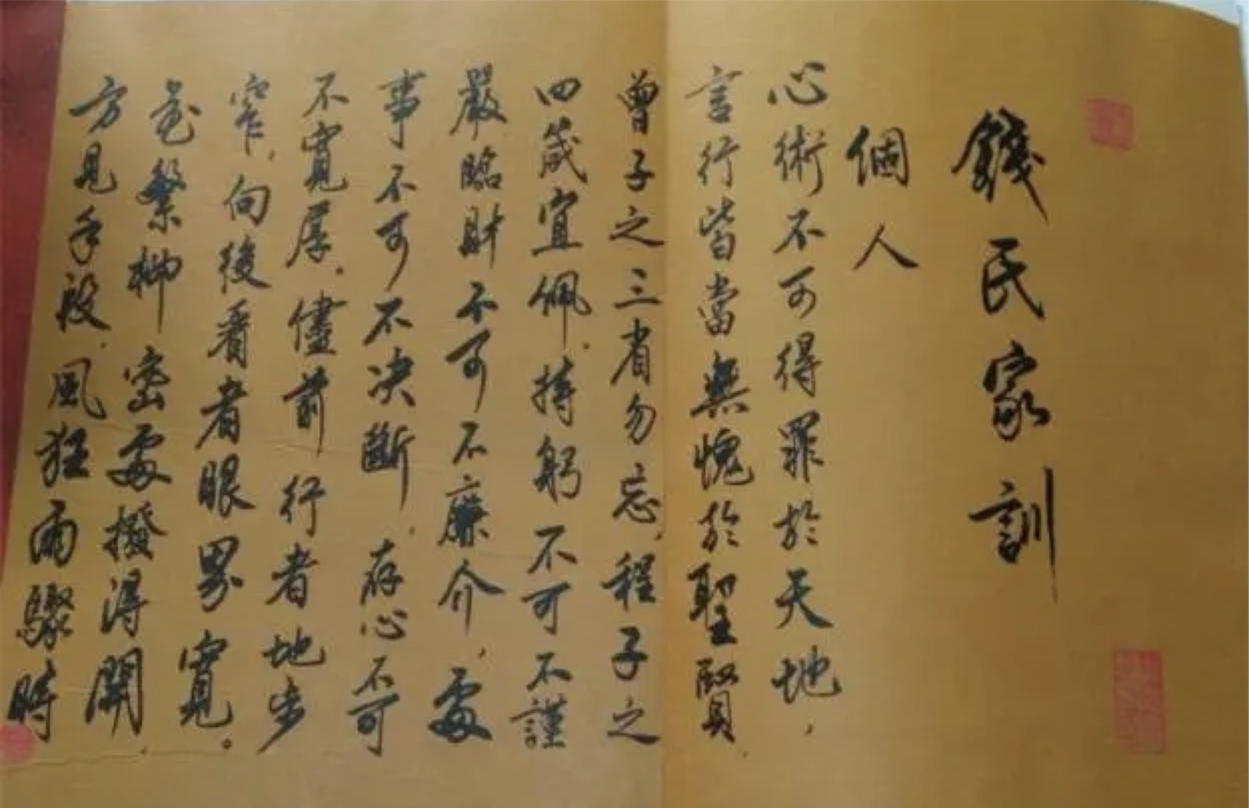 錢民家訓
個人
心術不可得罪於天地，
言行皆當無愧於聖賢.
曾子之三省勿忘,程子之
四箴宜佩.持躬不可不謹
嚴臨財不可不廉介,處
事不可不决斷,存心不可
不寬厚.儘前行者地步
窄,向後看者眼界寬。
花繁柳密處撥得開.
方見手段.風狂雨驟時